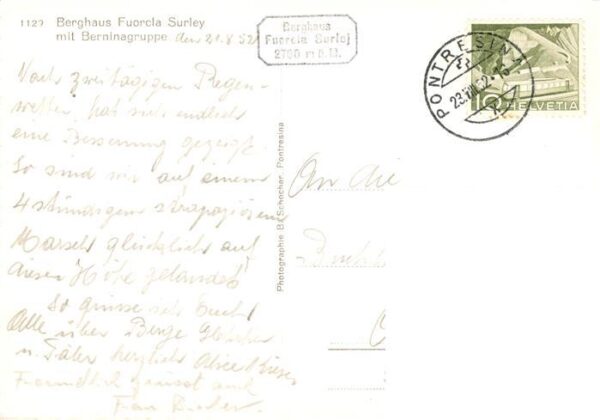 1129 Berghaus Fuorcla Surley
mit Berninagruppe den 21.8.52
Berghaus
Fuorcla Surlej
2760 m ü. M.
PONTRESINA
23.VIII.52
10 HELVETIA
Nach zweitägigem Regen-
wetter, hat sich endlich
eine Besserung gezeigt.
So sind wir auf einem
4 stündigem strapaziösen
Marsch glücklich auf
dieser Höhe gelandet!
So grüsse ich Euch
Alle über Berge
u. Täler herzlich Alice
Freundlich grüsst auch
Frau
An die
Photographie B. Schocher, Pontresina